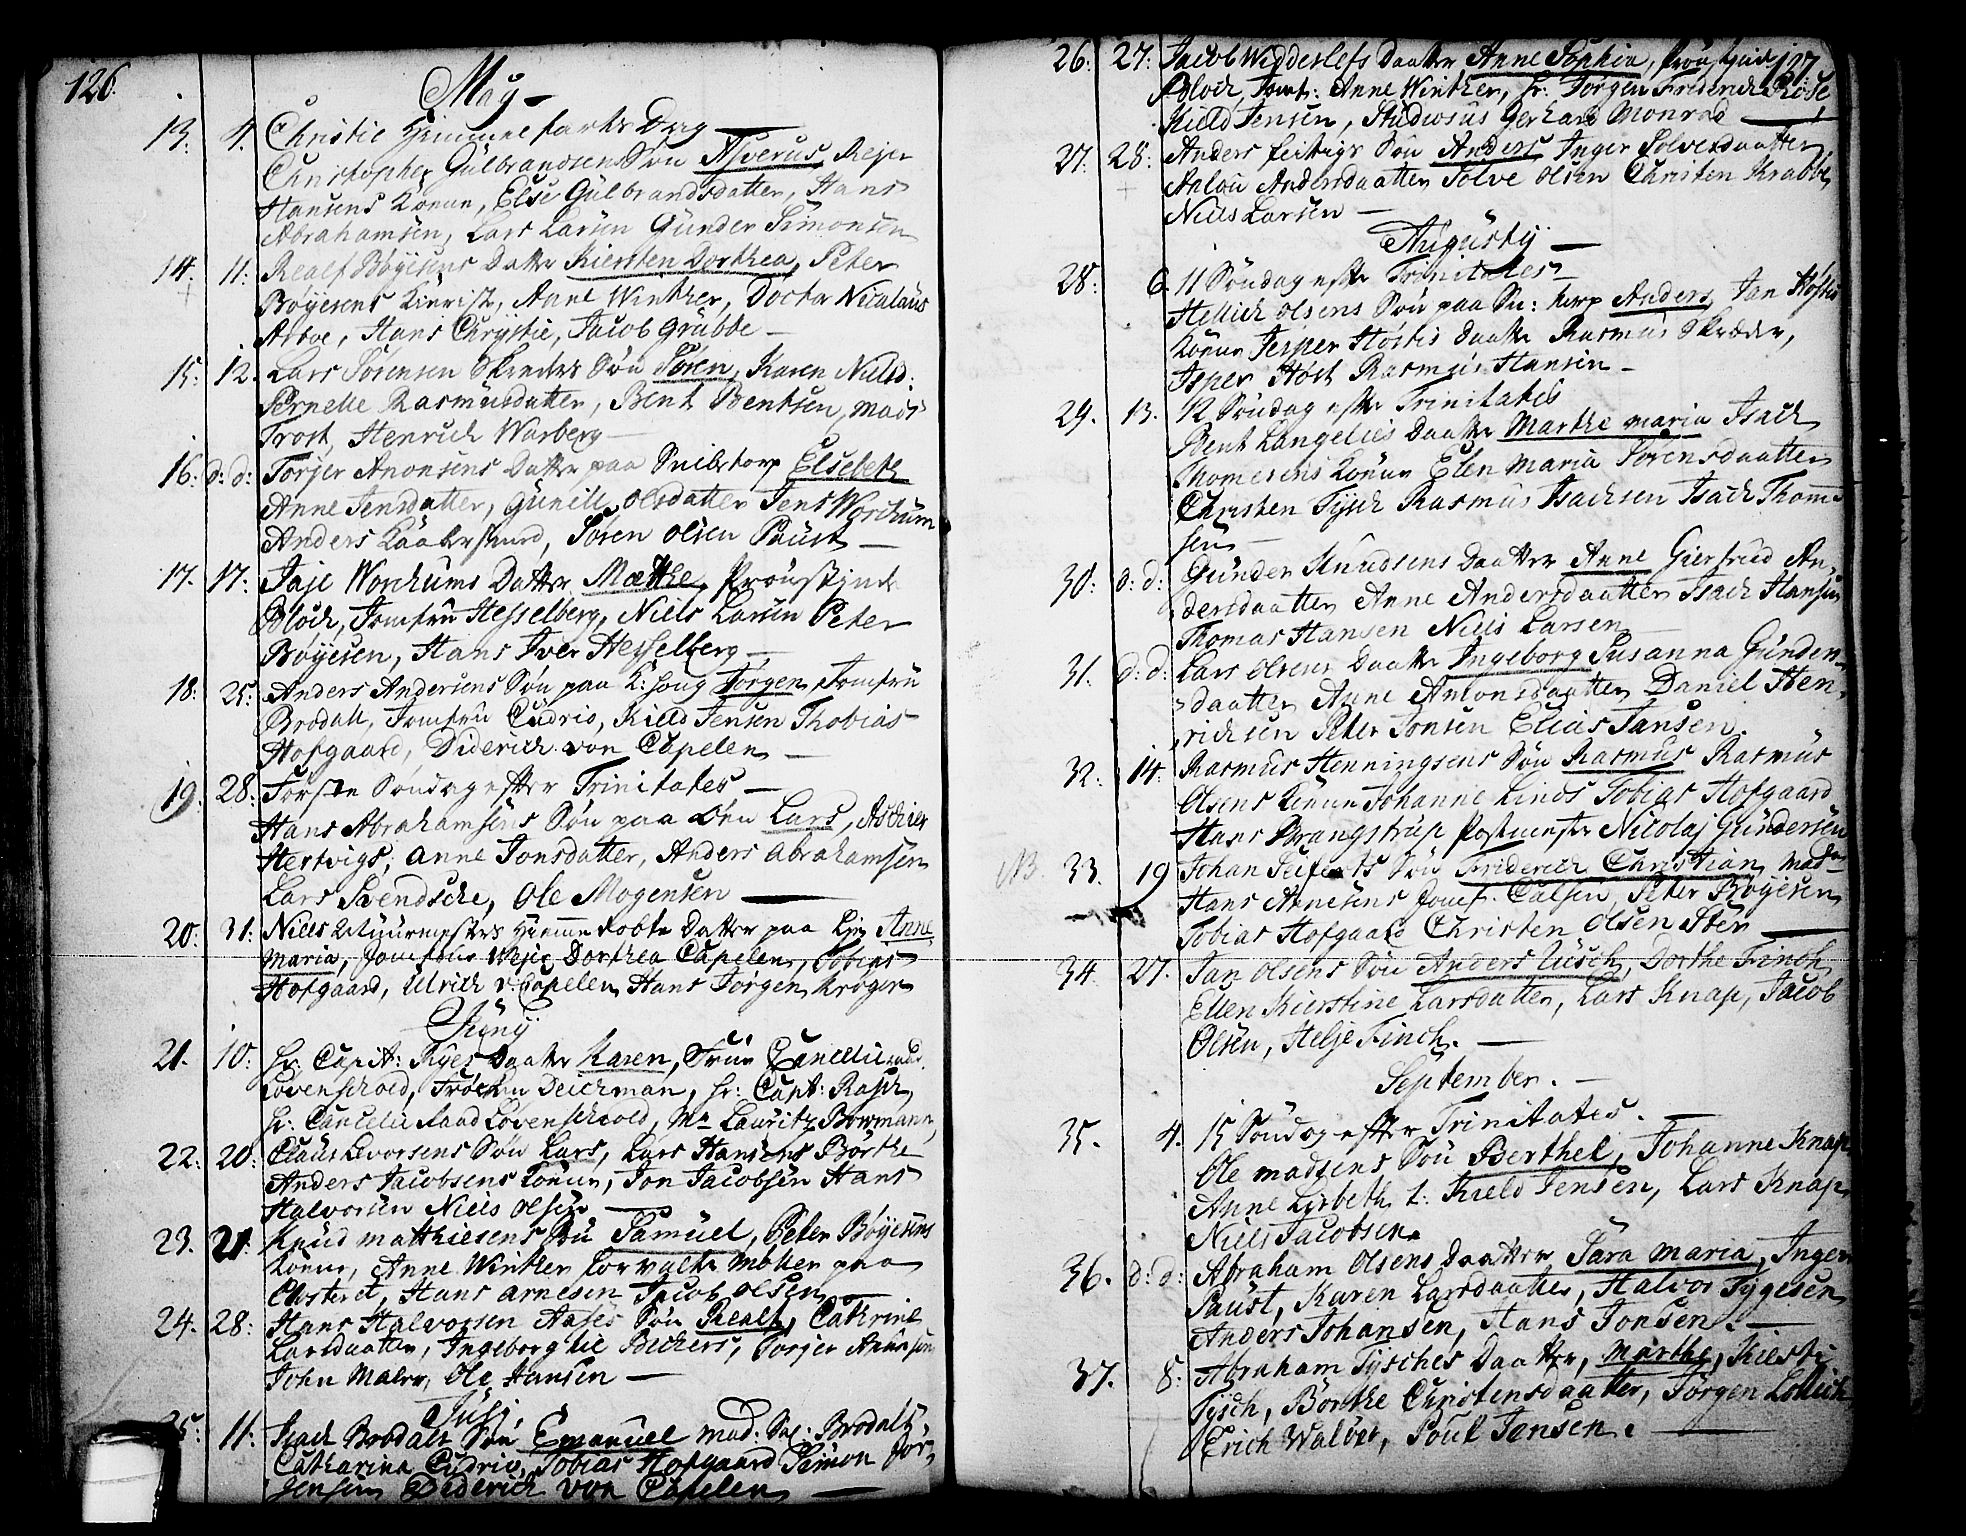 126.
May
13. 4. Christie Himmelfarts Dag
Christopher Gülbrandsens Søn Asverus, Rejer
Hansens Konne, Else Gülbrandsdatter, Hans
Abrahamsen, Lars Larsen Günder Simonsen
14. 11. Realf Bøyesens Datter Kiersten Dorthea, Peter
Bøyesens, Anne Winther, Doctor Nicolaus
Arboe, Hans Chrystie, Jacob Grubbe
15. 12. Lars Sørensen Skreders Søn Søren, Karen Nielsd:
Pernelle Rasmüsdatter, Bent Bentsen, Mads
Trost, Henrich Warberg
16. d: d: Torjer Anonsens Datter paa Snibstorp Elsebeth
Anne Jensdatter, Gunild Olsdatter Jens Worchum
Anders, Søren Olsen Paust
17. 17: Jaje Worchums Datter Mætthe, Provstinde
Bloch, Jomfrü Hesselberg, Niels Larsen Peter
Bøyesen, Hans Iver Hesselberg
18. 25: Anders Andersens Søn paa Torgen, Jomfrü
Brodall, Jomfrü Cudrio, Kield Jensen Thobias
Hofgaard, Diderich von Capelen
19. 28: Første Søndag efter Trinitates
Hans Abrahamsens Søn paa Øen Lars,
Hertvigs, Anne Jonsdatter, Anders Abrahamsen
Lars Svendsche, Ole Mogensen
20. 31: Niels Hiemmedøbte Datter paa Anne
Maria, Jomfrue Dorthea Capelen, Tobias
Hofgaard, Ulrich v: Capelen Hans Jørgen Krøger
Juny
21. 10: Hr. Capit: Ryes Daatter Karen, Frue
Løvenschold, Frøchen Deichman, Hr: Capt: Rasch,
Hr: Cancelie Raad Løvenschold, Mr Lauritz Bowmann
22. 20: Claus Levorsens Søn Lars, Lars Hansens Børthe
Anders Jacobsens Konne, Jon Jacobsen Hans
Halvorsen Niels Olsen
23. 21. Knud Matthiesens Søn Samuel, Peter Bøyesens
Konne, Anne Winther Forvalter Møller paa
Closteret, Hans Arnesen Jacob Olsen
24. 28: Hans Halvorsen Aases Søn Realf, Cathrine
Larsdaatter, Ingeborg Beckers, Torjer Anonsen
John Maler, Ole Hansen
July.
25. 11: Isach Brodals Søn Emanuel Mad: Sal. Brodals,
Catharina Cudrio, Tobias Hofgaard Simon Jør-
sensen Diderich von Capelen
127.
26. 27: Jacob Widdersлefs Daatter Anne Sophia, Provstinde
Bloch, Jomf: Anne Winther, Hr: Jørgen Friderich Rose
Kield Jensen, Studiosus Gerhard Monrad
27. 28: Anders Søn Anders Inger Solvesdaatter
Anlou Andersdaatter Solve Olsen Christen Krabbe
Niels Larsen
Augusty
28. 6. 11 Søndag efter Trinitates
Hellich Olsens Søn paa Sn: torp Anders, Jan Høstes
Konne Jesper Høstis Daatter Rasmus Skræder,
Jsper Høst Rasmus Hansen
29. 13. 12 Søndag efter Trinitatis
Bent Langelies Daatter Marthe Maria Isach
Thomesens Konne Elen Maria Sørensdaatter
Christen Tysch Rasmus Isachsen Isach Thom-
sen
30: d: d: Günder Knudsens Daatter Anne Gierfrued An-
dersdaatter Anne Andersdaatter Isach Hansen
Thomas Hansen Niels Larsen
31. d: d: Lars Olsens Daatter Ingeborg Susanna Günders-
daatter Anne Antonsdaatter Daniel Hen-
richsen Peter Jonsen Elias Jansen.
32. 14. Rasmus Henningsens Søn Rasmus Rasmus
Olsens Konne Johanne Linds Tobias Hofgaard
Hans Brangstrup Postmester Nicolaj Gundersen
NB. 33. 19 Johan Seiferts Søn Friderich Christian, Mad:
Hans Arnesens Jomf: Peter Bøyesen
Tobias Hofgaard Christen Olsen Ster
34. 27. Jan Olsens Søn Anders Busch, Dorthe Finch
Ellen Kierstine Larsdatter, Lars Knap, Jacob
Olsen, Helje Finch.
September.
35. 4. 15 Søndag efter Trinitates.
Ole Madsens Søn Berthel, Johanne Knap
Anne Lisbeth L: Kield Jensen, Lars Knap
Niels Jacobsen.
36. d: d: Abraham Olsens Daatter Sara Maria, Inger
Paust, Karen Larsdaatter, Halvor Tygesen
Anders Johansen, Hans Jonsen.
37. 8: Abraham Tysches Daatter, Marthe, Kiersti
Tysch, Børthe Christensdaatter, Jørgen
Erich Walbør, Poul Jensen.